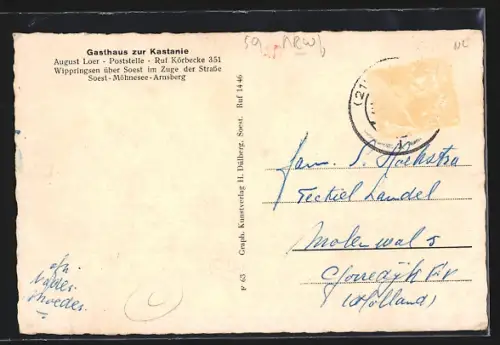 Gasthaus zur Kastanie
August Loer - Poststelle - Ruf Körbecke 351
Wippringsen über Soest im Zuge der Straße
Soest-Möhnesee-Arnsberg
59 NRW
(21
F 63 Graph. Kunstverlag H. Dülberg, Soest. Ruf 1446
Fam. S. Hoekstra
Textiel Landel
Molenwal 5
Gorredijk Fr
(Holland)
afz.